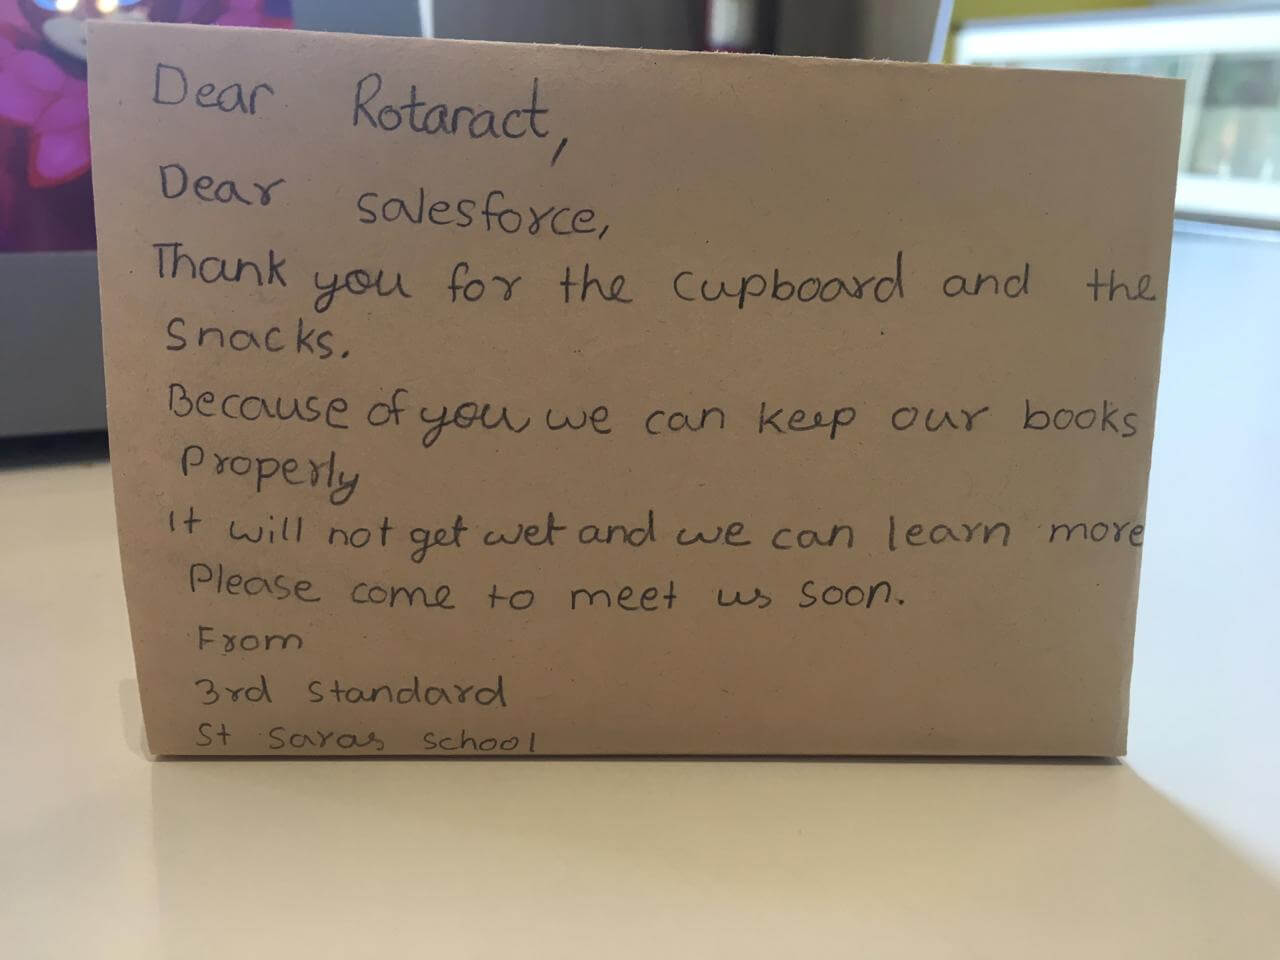 Dear Rotaract,
Dear salesforce,
Thank you for the cupboard and the
Snacks.
Because of you we can keep our books
Properly
It will not get wet and we can learn more
Please come to meet us soon.
From
3rd standard
St Saras school